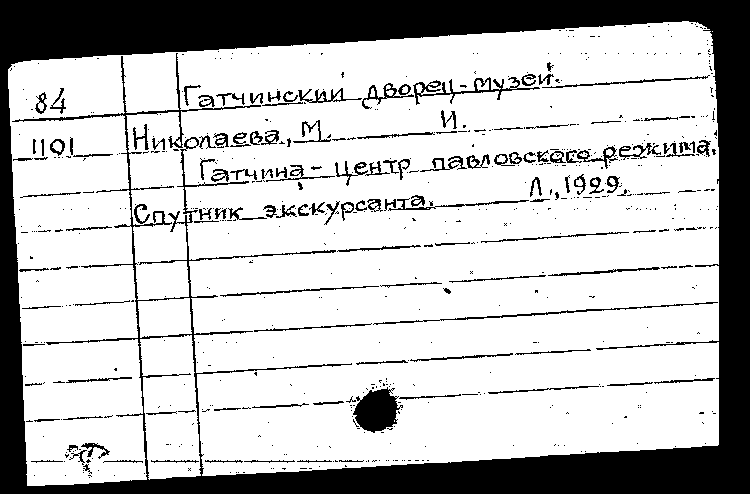 84 Гатчинский дворец-музей.
1101 Николаева, М. И.
Гатчина - центр павловского режима.
Спутник экскурсанта. Л., 1929.